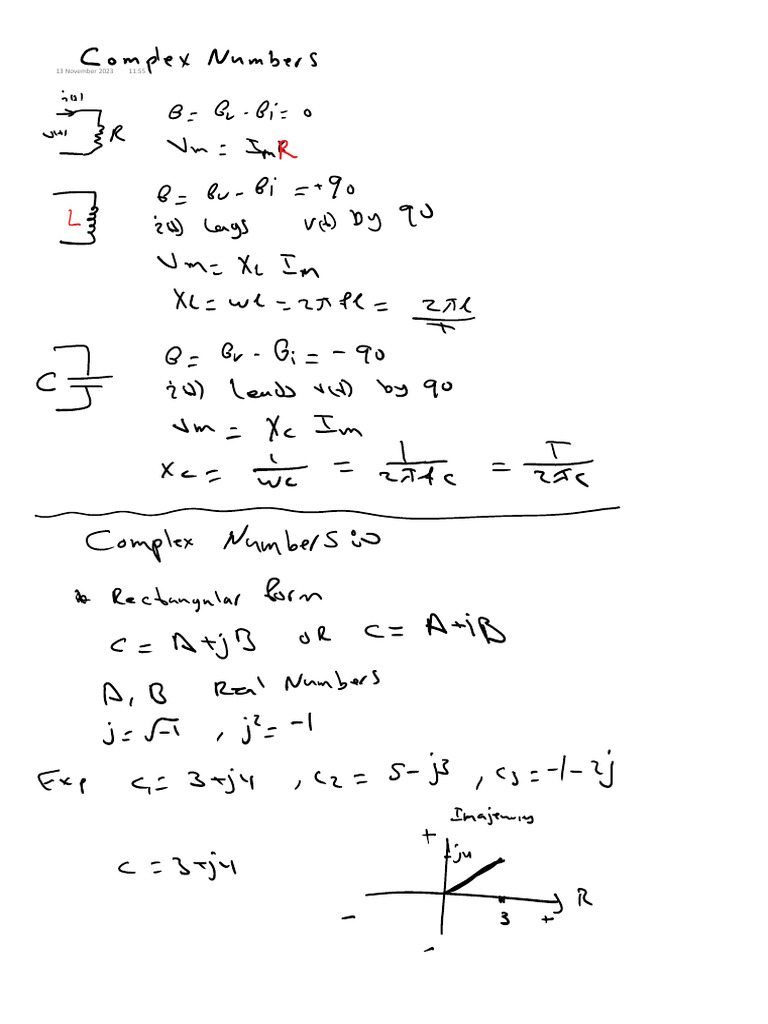 Complex Numbers
13 November 2023 11:55
i(t)
v(t) R
θ = θv - θi = 0
Vm = ImR
L
θ = θv - θi = +90
i(t) lags v(t) by 90
Vm = XL Im
XL = wl = 2π fl = 2πl / T
C
θ = θv - θi = - 90
i(t) leads v(t) by 90
Vm = Xc Im
Xc = 1 / wc = 1 / 2πfc = T / 2πc
Complex Numbers :
* Rectangular form
C = A+jB OR C = A+iB
A, B Real Numbers
j = √-1 , j² = -1
Exp C1 = 3+j4 , C2 = 5-j3 , C3 = -1-2j
Imajenury
+
j4
C = 3+j4
R
-
3 +
-